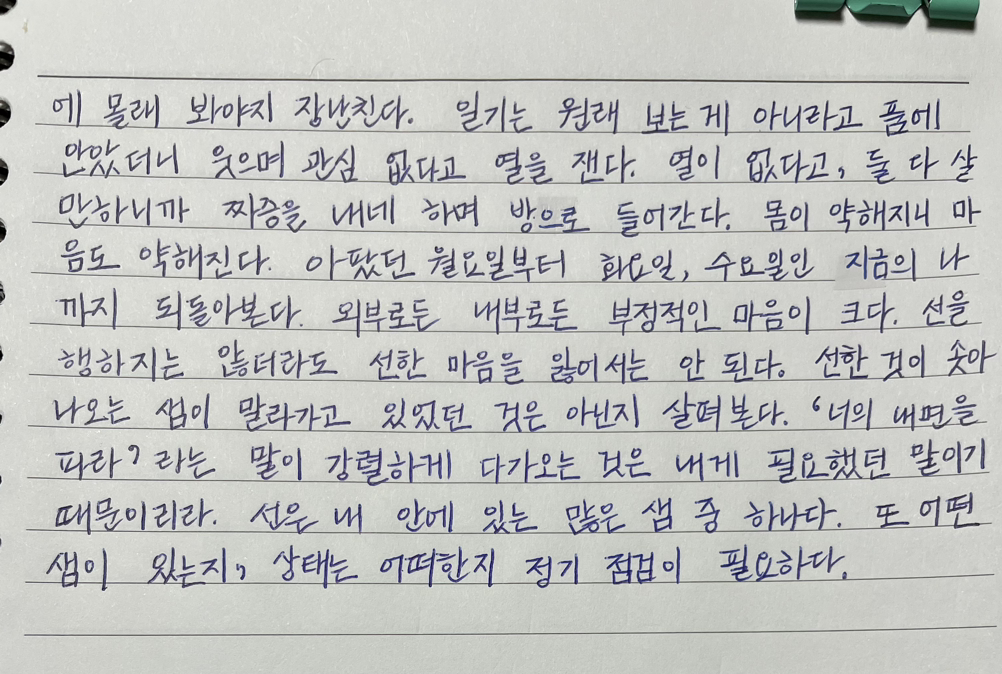 에 몰래 봐야지 장난친다. 일기는 원래 보는 게 아니라고 품에
안았더니 웃으며 관심 없다고 열을 잰다. 열이 없다고, 둘 다 살
만하니까 짜증을 내네 하며 방으로 들어간다. 몸이 약해지니 마
음도 약해진다. 아팠던 월요일부터 화요일, 수요일인 지금의 나
까지 되돌아본다. 외부로든 내부로든 부정적인 마음이 크다. 선을
행하지는 않더라도 선한 마음을 잃어서는 안 된다. 선한 것이 솟아
나오는 샘이 말라가고 있었던 것은 아닌지 살펴본다. ‘너의 내면을
파라’ 라는 말이 강렬하게 다가오는 것은 내게 필요했던 말이기
때문이리라. 선은 내 안에 있는 많은 샘 중 하나다. 또 어떤
샘이 있는지, 상태는 어떠한지 정기 점검이 필요하다.